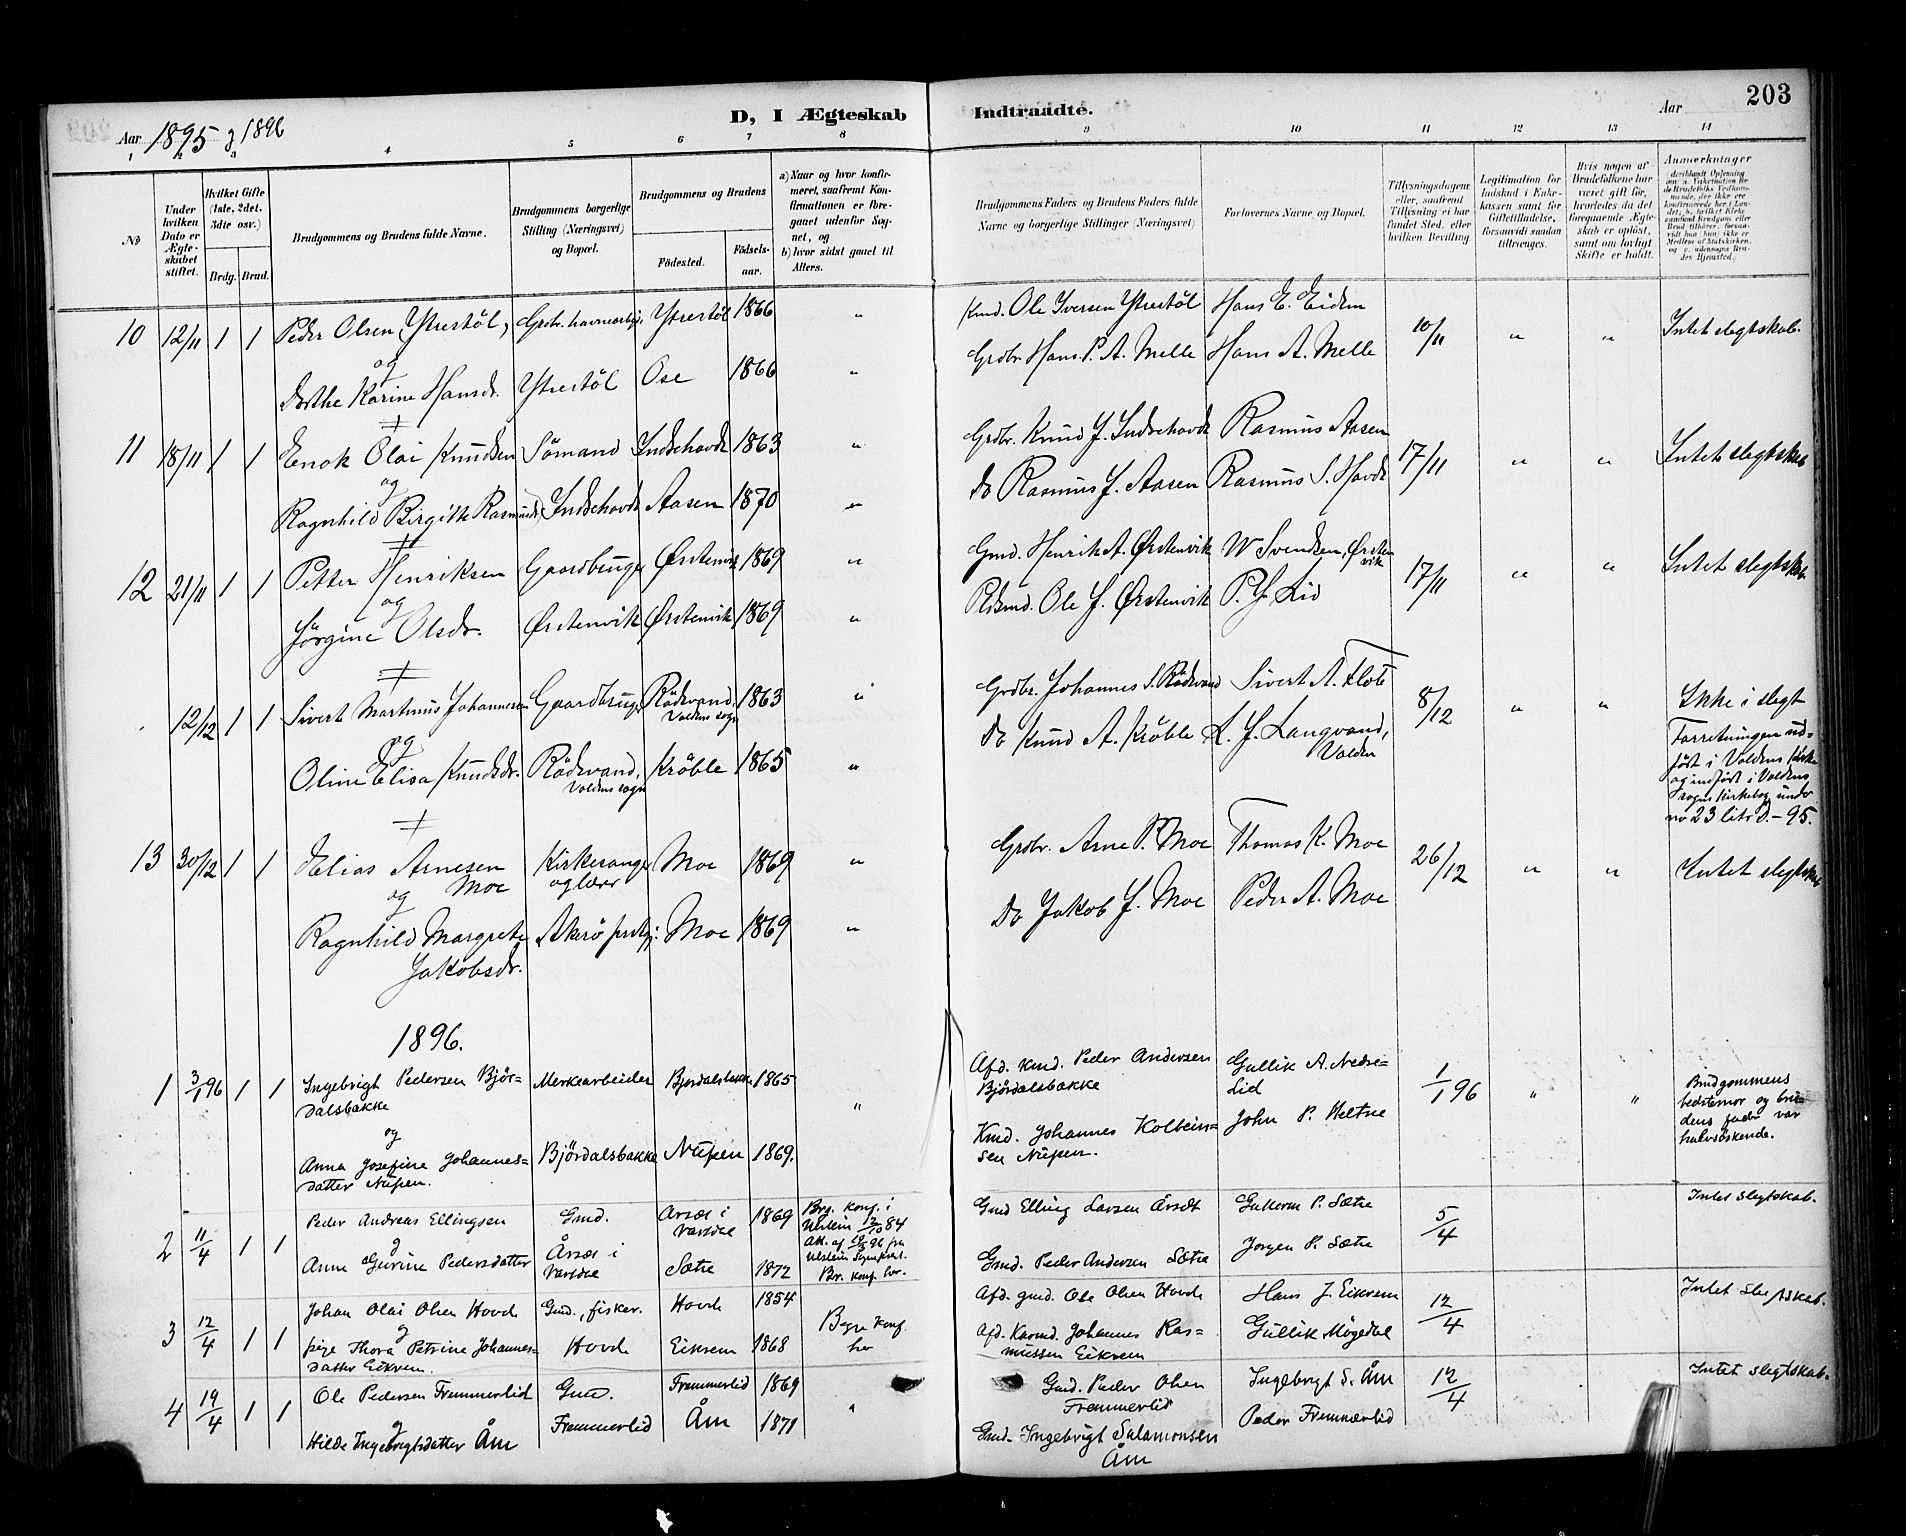 203
D, I Ægteskab Indtraadte.
Aar 1895 & 1896
Aar
1 2 3 4 5 6 7 8 9 10 11 12 13 14
No
Under hvilken Dato er Ægteskabet stiftet.
Hvilket Gifte (1ste, 2det, 3dte osv.)
Brdg. Brud.
Brudgommens og Brudens fulde Navne.
Brudgommens borgerlige Stilling (Næringsvei) og Bopæl.
Brudgommens og Brudens
Födested.
Födselsaar.
a) Naar og hvor konfirmeret, saafremt Konfirmationen er foregaaet udenfor Sognet, og
b) hvor sidst gaaet til Alters.
Brudgommens Faders og Brudens Faders fulde Navne og borgerlige Stillinger (Næringsvei)
Forlovernes Navne og Bopæl.
Tillysningsdagene eller, saafremt Tillysning ei har fundet Sted, efter hvilken Bevilling
Legitimation for Indskud i Enkekassen samt for Giftetilladelse, forsaavidt saadan tiltrænges.
Hvis nogen af Brudefolkene har været gift för, hvorledes da det foregaaende Ægteskab er oplöst, samt om lovligt Skifte er holdt.
Anmærkninger
10 12/11 1 1 Peder Olsen Ytrestöl, Grdbr. havnearbd. Ytrestöl 1866 " Kmd. Ole Iversen Ytrestöl Hans E. Eidem 10/11 " " Intet slegtskab.
og
Dorthe Karine Hansdr. Ytrestöl Ose 1866 " Grdbr. Hans P. A. Melle Hans A. Melle
11 18/11 1 1 Enok Olai Knudsen Sömand Indsehovde 1863 " Grdbr. Knud J. Indsehovde Rasmus Aasen 17/11 " " Intet slegtskab
og
Ragnhild Birgitte Rasmusdr. Indsehovde Aasen 1870 " Do Rasmus J. Aasen Rasmus S. Hovde
12 21/11 1 1 Petter Henriksen Gaardbruger Ørstenvik 1869 " Gmd. Henrik A. Ørstenvik W Svendsen, Ørstenvik 17/11 " " Intet slegtskab
og
Jörgine Olsdr. Ørstenvik Ørstenvik 1869 " Pldsmd. Ole J. Ørstenvik P. J. Lid
12/12 1 1 Sivert Martinus Johannesen Gaardbruger Rödsvand, Voldens sogn 1863 " Grdbr. Johannes S. Rödsvand Sivert A. Flote 8/12 " " Ikke i slegt
og
Oline Elisa Knudsdr. Rödsvand, Voldens sogn Kröble 1865 " Do Knud A. Kröble L. J. Langvand, Volden
Forretningen udfört i Voldens Kirke og indfört i Voldens sogns kirkebog under no 23 litr D.-95.
13 30/12 1 1 Elias Arnesen Moe Kirkesanger og lærer Moe 1869 " Grdbr. Arne P. Moe Thomas K. Moe 26/12 " " Intet slegtskab
og
Ragnhild Margrete Jakobsdr. Akerö prstgj. Moe 1869 " Do Jakob J. Moe Peder A. Moe
1896.
1 3/1 96 1 1 Ingebrigt Pedersen Björdalsbakke Merkearbeider Björdalsbakke 1865 " Afd. Kmd. Peder Andersen Björdalsbakke Gullik A. Nedrelid 1/1 96 " " Brudgommens bedstemor og brudens fader var halvsöskende.
og
Anna Josefine Johannesdatter Nupen. Björdalsbakke Nupen 1869. Kmd. Johannes Kolbeinsen Nupen. John P. Heltne
2 11/4 1 1 Peder Andreas Ellingsen Gmd. Årsæt i Vartdal 1869 Brg. konf. i Ulstein 12/10 84 Att. af 10/3 96 fra Ulstein Sognekald. Gmd Elling Larsen Årsæt Guttorm P. Sætre 5/4 Intet slegtskab.
og
Anne Gurine Pedersdatter Årsæt i Vartdal Sætre 1872 Br. konf. her. Gmd. Peder Andersen Sætre Jörgen P. Sætre
3 12/4 1 1 Johan Olai Olsen Hovde Gmd., fisker. Hovde 1854 Begge konf. her Afd. gmd. Ole Olsen Hovde Hans J. Eikrem 12/4 Intet slegtskab.
og
pige Thora Petrine Johannesdatter Eikrem. Hovde Eikrem 1868 Afd. Kaarmd. Johannes Rasmussen Eikrem Gullik Mögedal
4 19/4 1 1 Ole Pedersen Fremmerlid Gmd. Fremmerlid 1869 " Gmd. Peder Olsen Fremmerlid Ingebrigt S. Åm 12/4 Intet slegtskab.
og
Hilde Ingebrigtsdatter Åm Fremmerlid Åm 1871 Gmd. Ingebrigt Salamonsen Åm Peder Fremmerlid